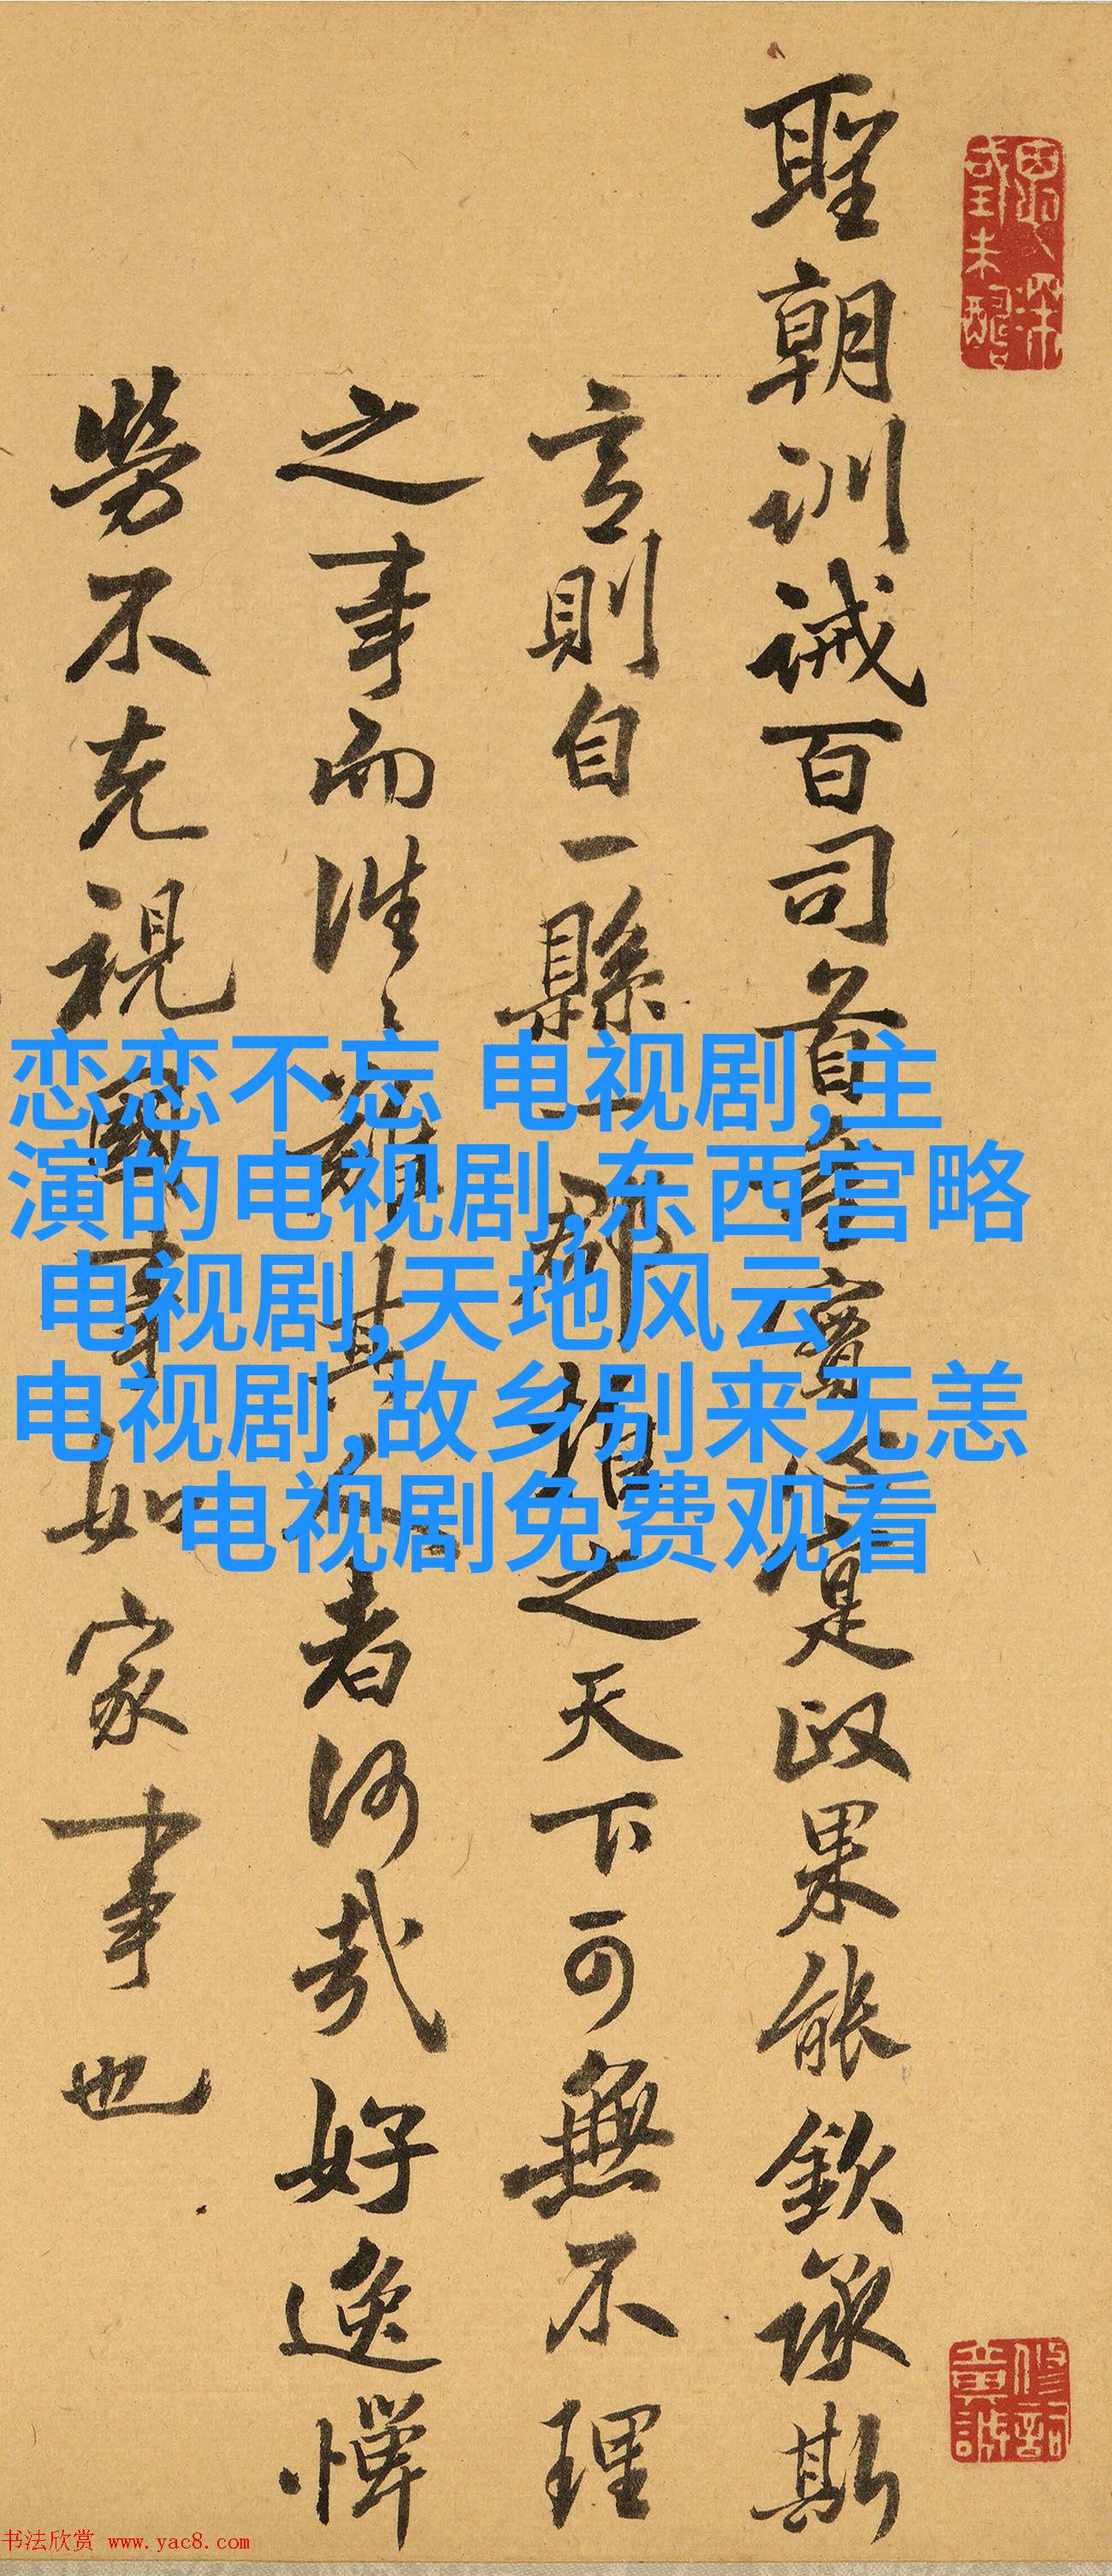 聖朝訓誡百司首實心寔政果能欽承斯
言則自一縣一郡措之天下可無不理
之事而往々難其人者何哉好逸憚
勞不克視國事如家事也
恋恋不忘 电视剧,主
演的电视剧,东西宫略
电视剧,天地风云
电视剧,故乡别来无恙
电视剧免费观看
书法欣赏 www.yac8.com